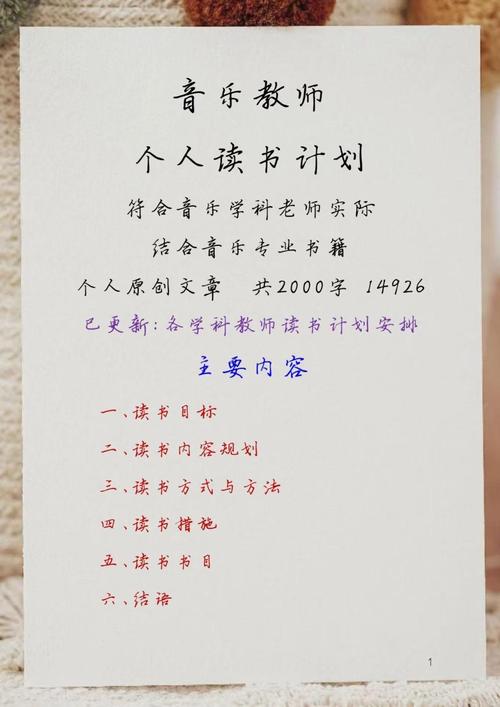 音乐教师
个人读书计划
符合音乐学科老师实际
结合音乐专业书籍
个人原创文章 共2000字 14926
已更新:各学科教师读书计划安排
主要内容
一、读书目标
二、读书内容规划
三、读书方式与方法
四、读书措施
五、读书书目
六、结语
1